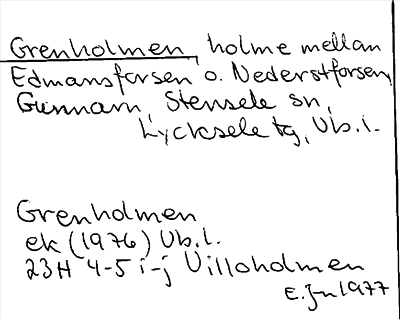 Grenholmen, holme mellan
Edmansforsen o. Nederstforsen,
Gunnarn, Stensele sn,
Lycksele tg, Vb. l.
Grenholmen
ek (1976) Vb. l.
23H 4-5 i-j Villoholmen
E. Jn 1977